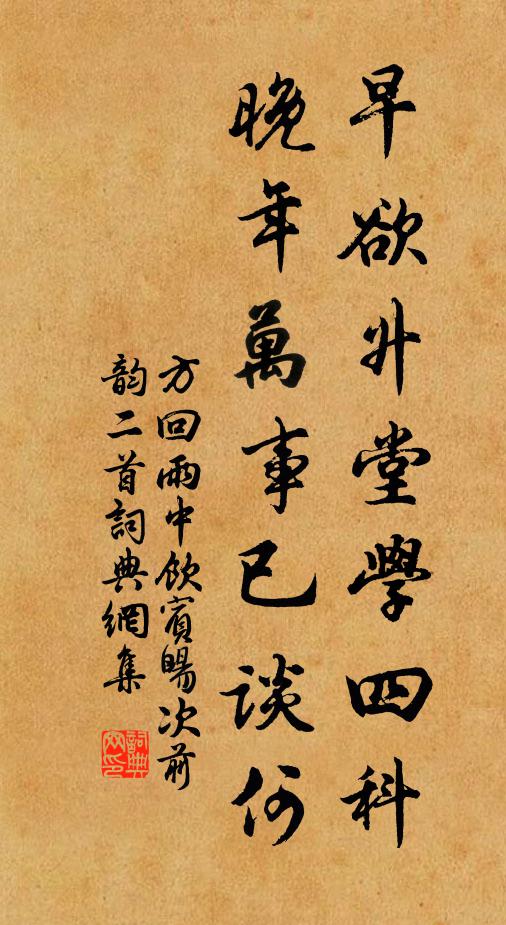 早欲升堂學四科
晚年萬事已談何
方回雨中飲賓暘次前
韵二首詞典網集
詞典
网印